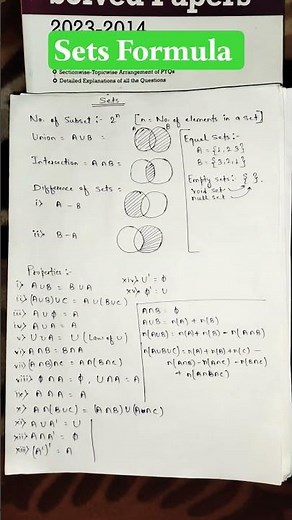 Solved Papers
2023-2014
Sets Formula
Sectionwise-Topicwise Arrangement of PYQs
Detailed Explanations of all the Questions
Sets
No. of Subset :- 2ⁿ [n = No. of elements in a set]
Union = A∪B =
A B
Intersection = A∩B =
Difference of sets =
i) A - B
ii) B - A
Equal Sets :-
A = {1,2,3}
B = {3,2,1}
Empty Sets :- { }
void set
null set
Properties :-
i) A∪B = B∪A
ii) (A∪B)∪C = A∪(B∪C)
iii) A∪ϕ = A
iv) A∪A = A
v) U∪A = U (Law of U)
vi) A∩B = B∩A
vii) (A∩B)∩C = A∩(B∩C)
viii) ϕ∩A = ϕ, U∩A = A
ix) A∩A = A
x) A∩(B∪C) = (A∩B)∪(A∩C)
xi) A∪A' = U
xii) A∩A' = ϕ
xiii) (A')' = A
xiv) U' = ϕ
xv) ϕ' = U
A∩B = ϕ
A∪B = n(A) + n(B)
n(A∪B) = n(A) + n(B) - n(A∩B)
n(A∪B∪C) = n(A) + n(B) + n(C) -
n(A∩B) - n(A∩C) - n(B∩C)
+ n(A∩B∩C)